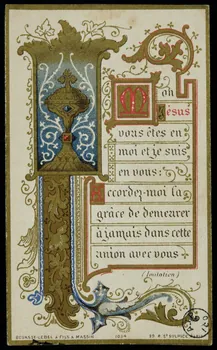 Mon
Jésus
vous êtes en
moi et je suis
en vous:
accordez-moi la
grâce de demeurer
à jamais dans cette
union avec vous
(Imitation)
BOUASSE-LEBEL & FILS & MASSIN
29, R. St SULPICE, PARIS